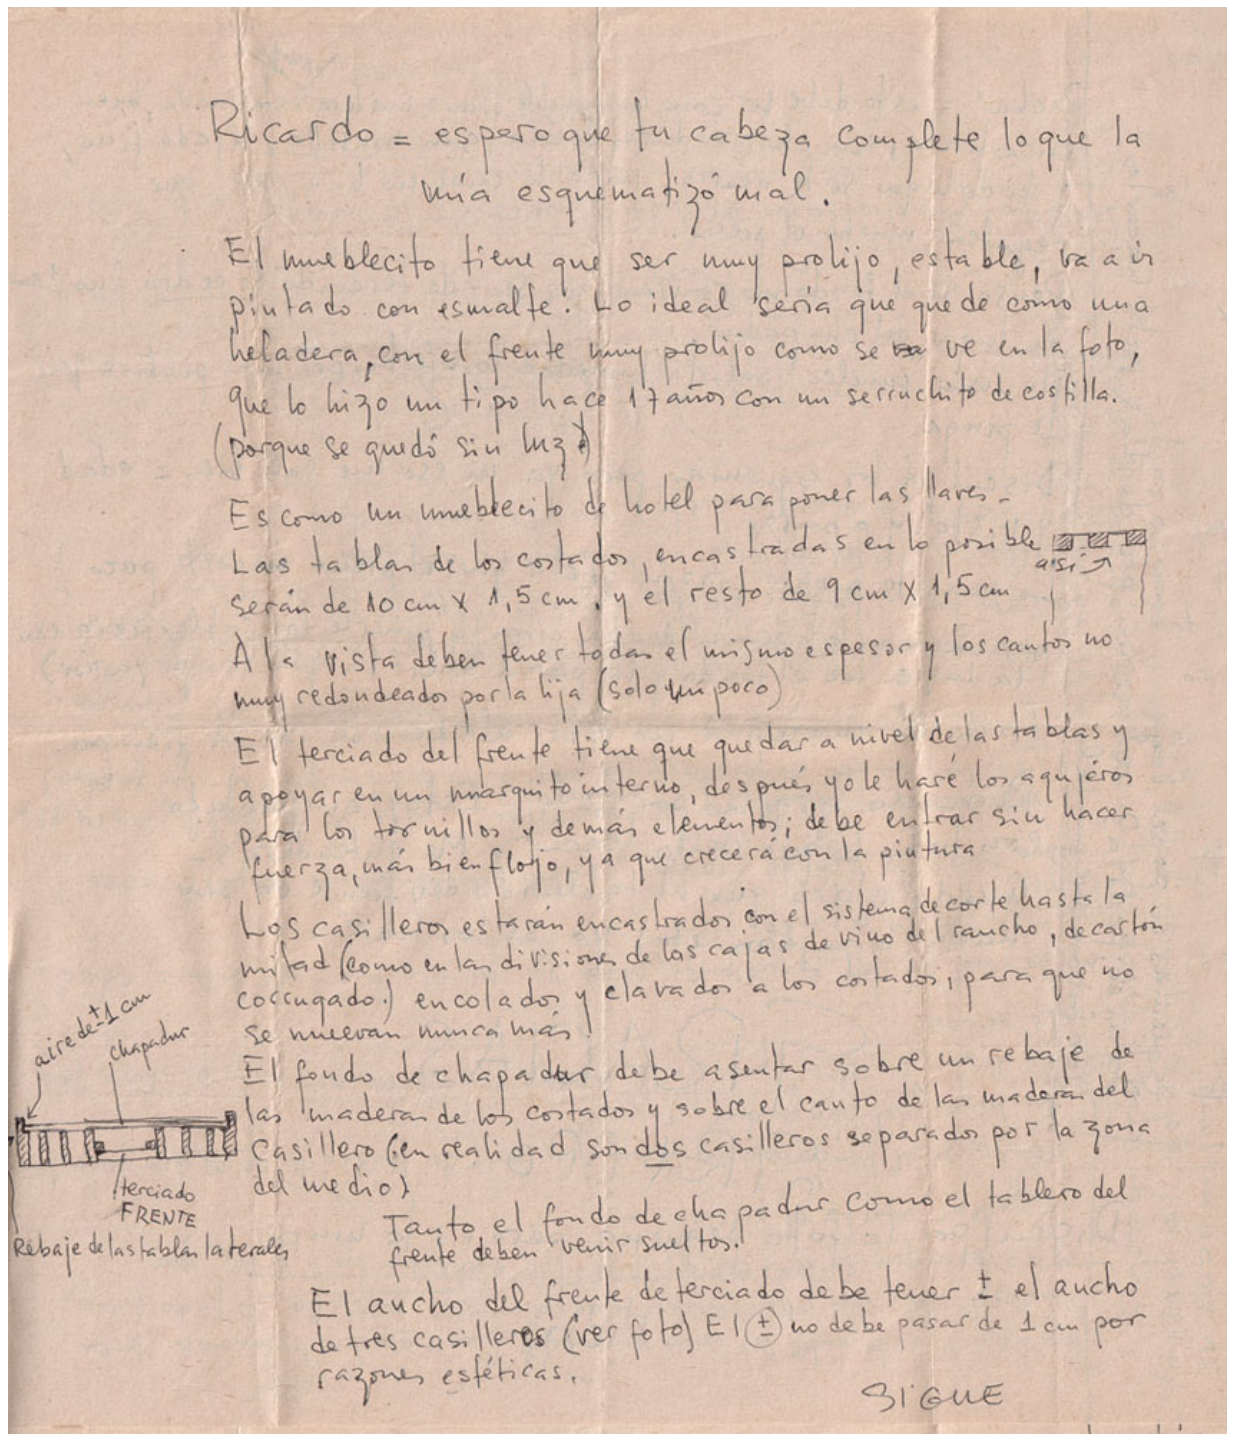 Ricardo = espero que tu cabeza complete lo que la
mía esquematizó mal.
El mueblecito tiene que ser muy prolijo, estable, va a ir
pintado con esmalte. Lo ideal sería que quede como una
heladera, con el frente muy prolijo como se ve en la foto,
que lo hizo un tipo hace 17 años con un serruchito de costilla.
(porque se quedó sin luz)
Es como un mueblecito de hotel para poner las llaves.
Las tablas de los costados, encastradas en lo posible
así
serán de 10 cm x 1,5 cm, y el resto de 9 cm x 1,5 cm
A la vista deben tener todas el mismo espesor y los cantos no
muy redondeados por la lija (solo un poco)
El terciado del frente tiene que quedar a nivel de las tablas y
apoyar en un marquito interno, después yo le haré los agujeros
para los tornillos y demás elementos; debe entrar sin hacer
fuerza, más bien flojo, ya que crecerá con la pintura
Los casilleros estarán encastrados con el sistema de corte hasta la
mitad (como en las divisiones de las cajas de vino del rancho, de cartón
corrugado.) encolados y clavados a los costados, para que no
se muevan nunca más!
El fondo de chapadur debe asentar sobre un rebaje de
las maderas de los costados y sobre el canto de las maderas del
casillero (en realidad son dos casilleros separados por la zona
del medio)
aire de ±1 cm
chapadur
terciado
FRENTE
Rebaje de las tablas laterales
Tanto el fondo de chapadur como el tablero del
frente deben venir sueltos.
El ancho del frente de terciado debe tener ± el ancho
de tres casilleros (ver foto) El ± no debe pasar de 1 cm por
razones estéticas.
SIGUE